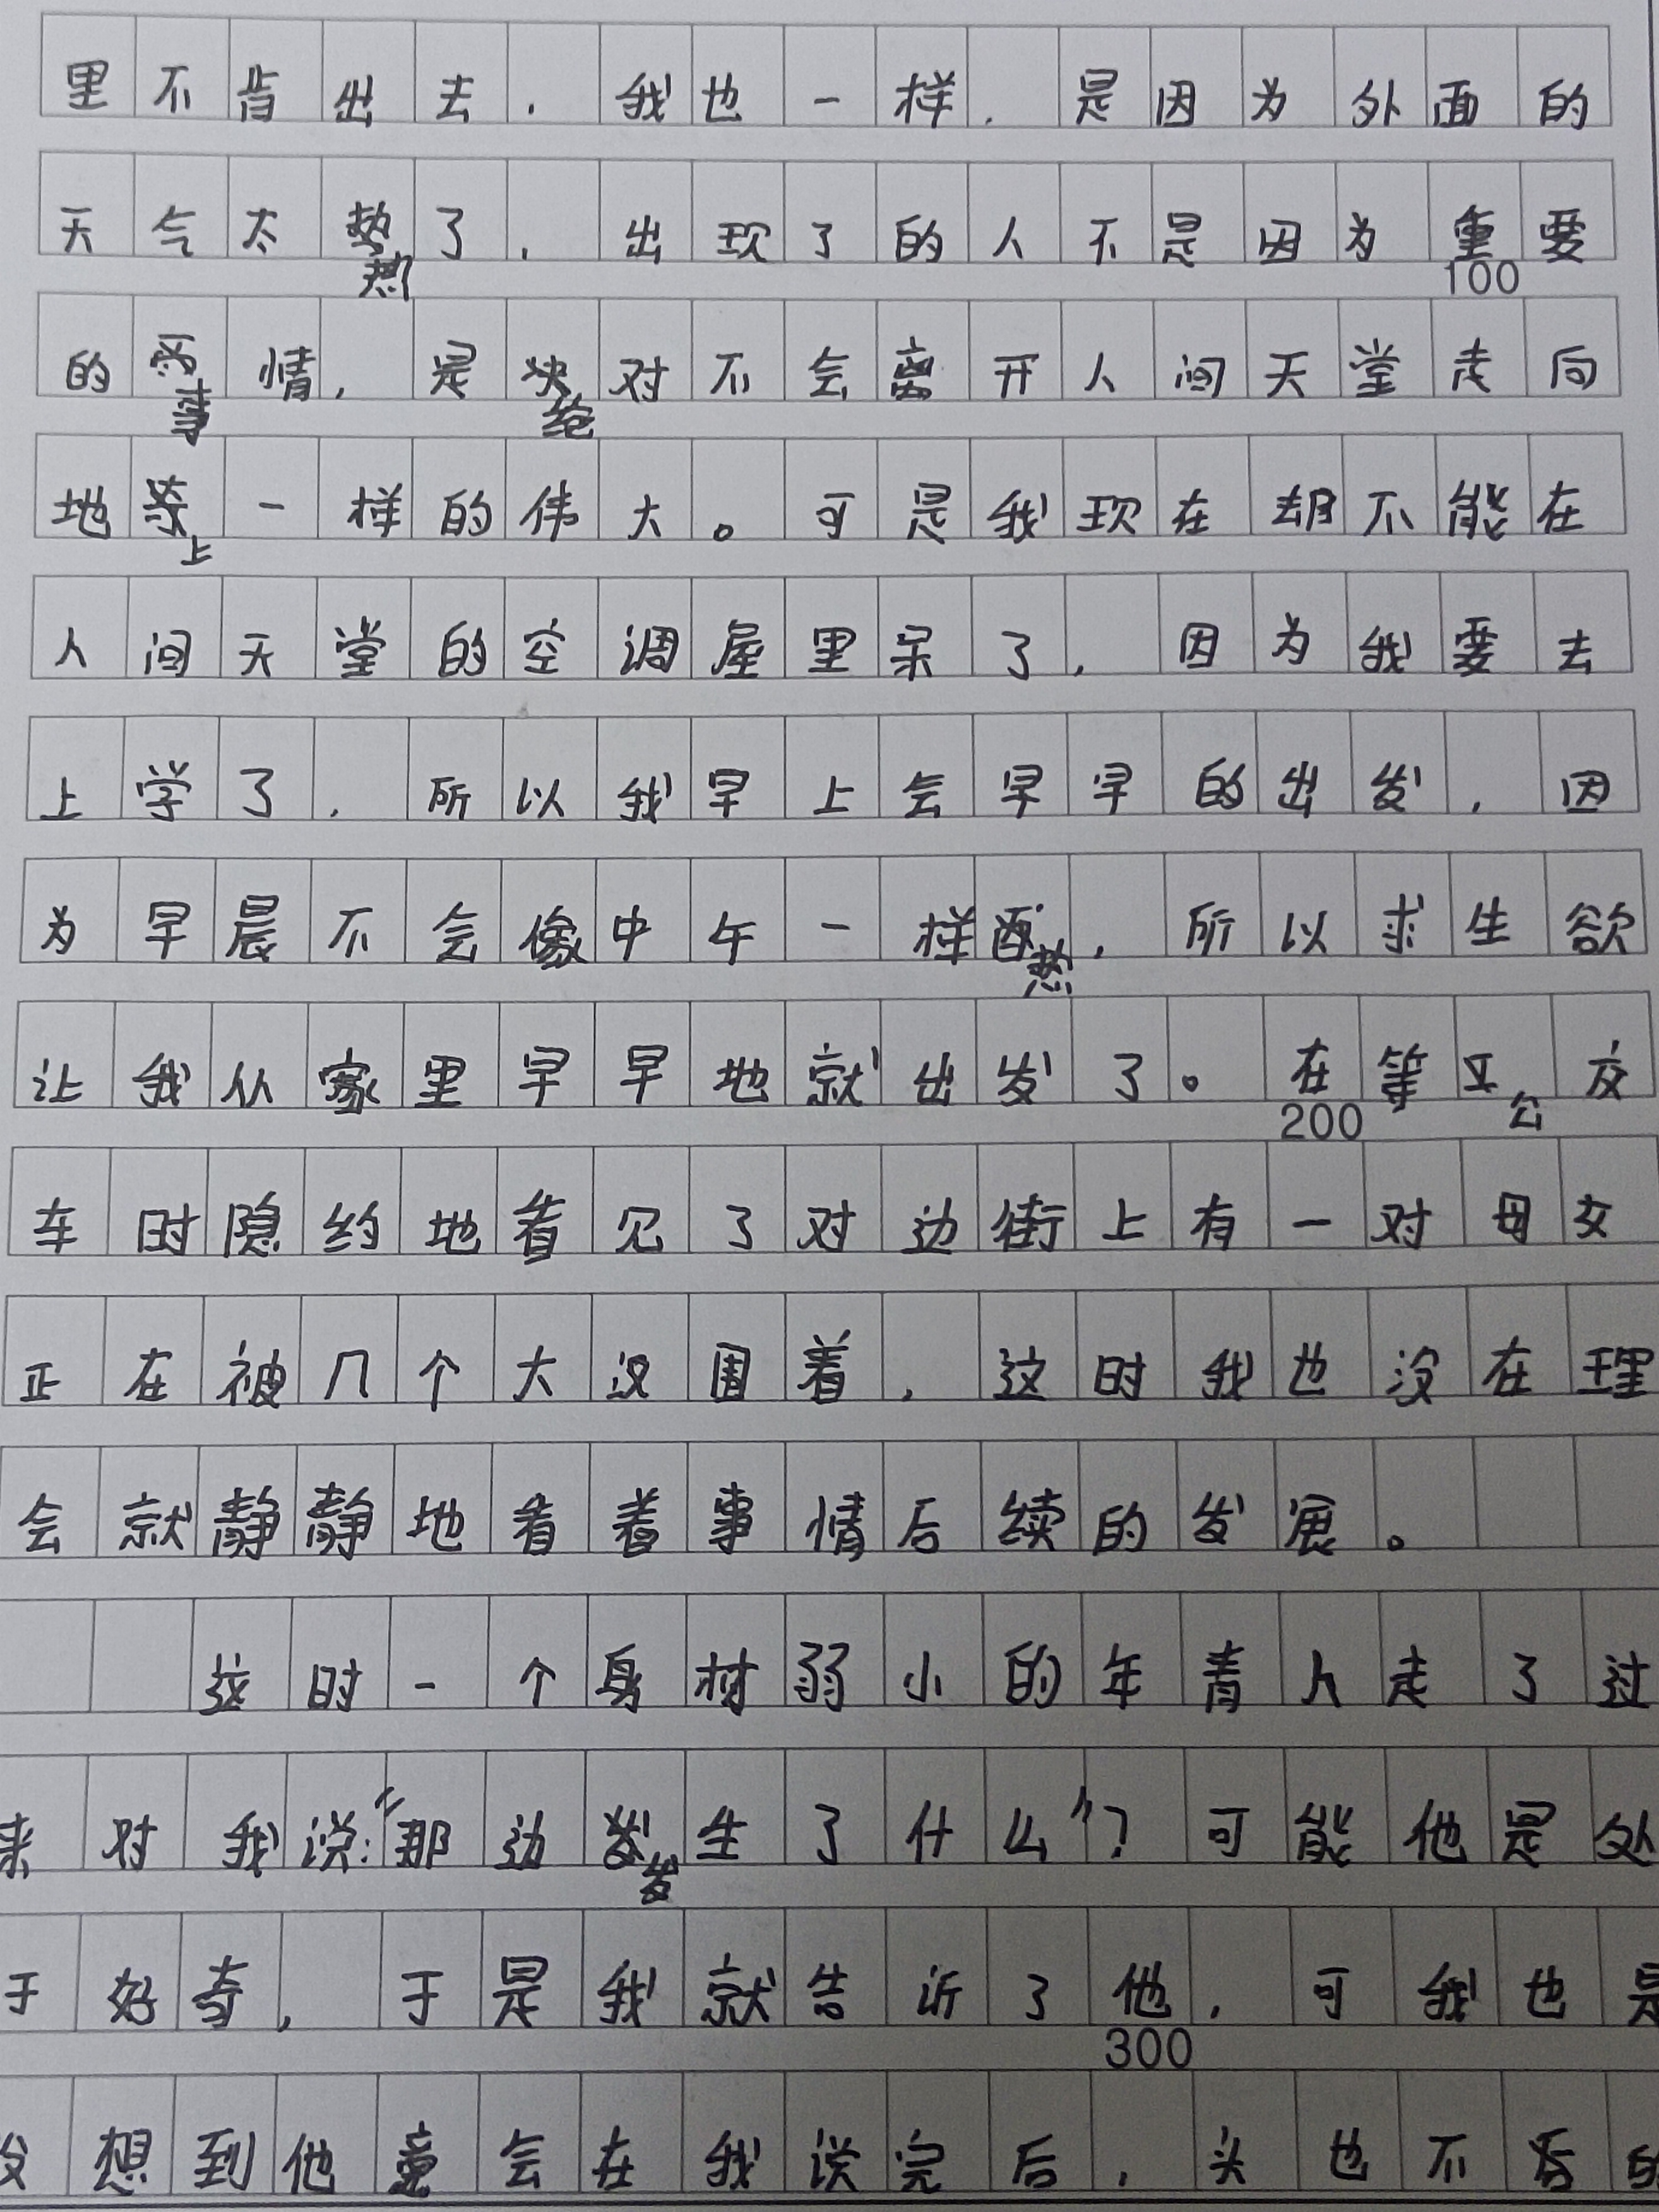 里不肯出去，我也一样，是因为外面的
天气太热了，出现了的人不是因为重要
100
的事情，是绝对不会离开人间天堂走向
地上一样的伟大。可是我现在却不能在
人间天堂的空调屋里呆了，因为我要去
上学了，所以我早上会早早的出发，因
为早晨不会像中午一样热，所以求生欲
让我从家里早早地就出发了。在等公交
200
车时隐约地看见了对边街上有一对母女
正在被几个大汉围着，这时我也没在理
会就静静地看着事情后续的发展。
这时一个身材弱小的年青人走了过
来对我说：“那边发生了什么”？可能他是处
于好奇，于是我就告诉了他，可我也是
300
没想到他竟会在我说完后，头也不